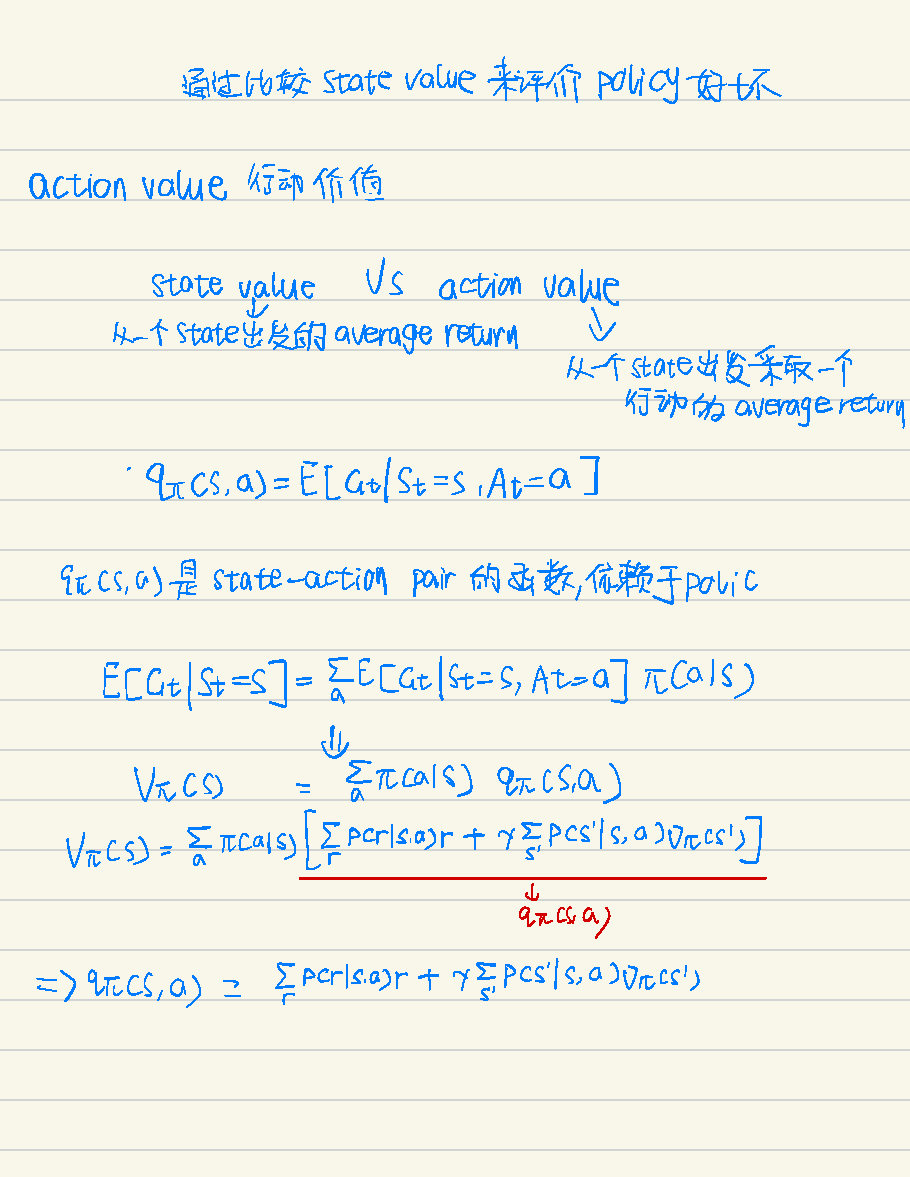 通过比较 state value 来评价 policy 好坏
action value 行动价值
state value VS action value
↓ ↘
从一个 state 出发的 average return
从一个 state 出发采取一个
行动的 average return
· qπ(s,a) = E[Gt|St=s, At=a]
qπ(s,a) 是 state-action pair 的函数,依赖于 polic
E[Gt|St=s] = Σa E[Gt|St=s, At=a] π(a|s)
⇓
Vπ(s) = Σa π(a|s) qπ(s,a)
Vπ(s) = Σa π(a|s) [Σr p(r|s.a)r + γ Σs' p(s'|s,a) vπ(s')]
↓
qπ(s,a)
=> qπ(s,a) = Σr p(r|s.a)r + γ Σs' p(s'|s,a) vπ(s')